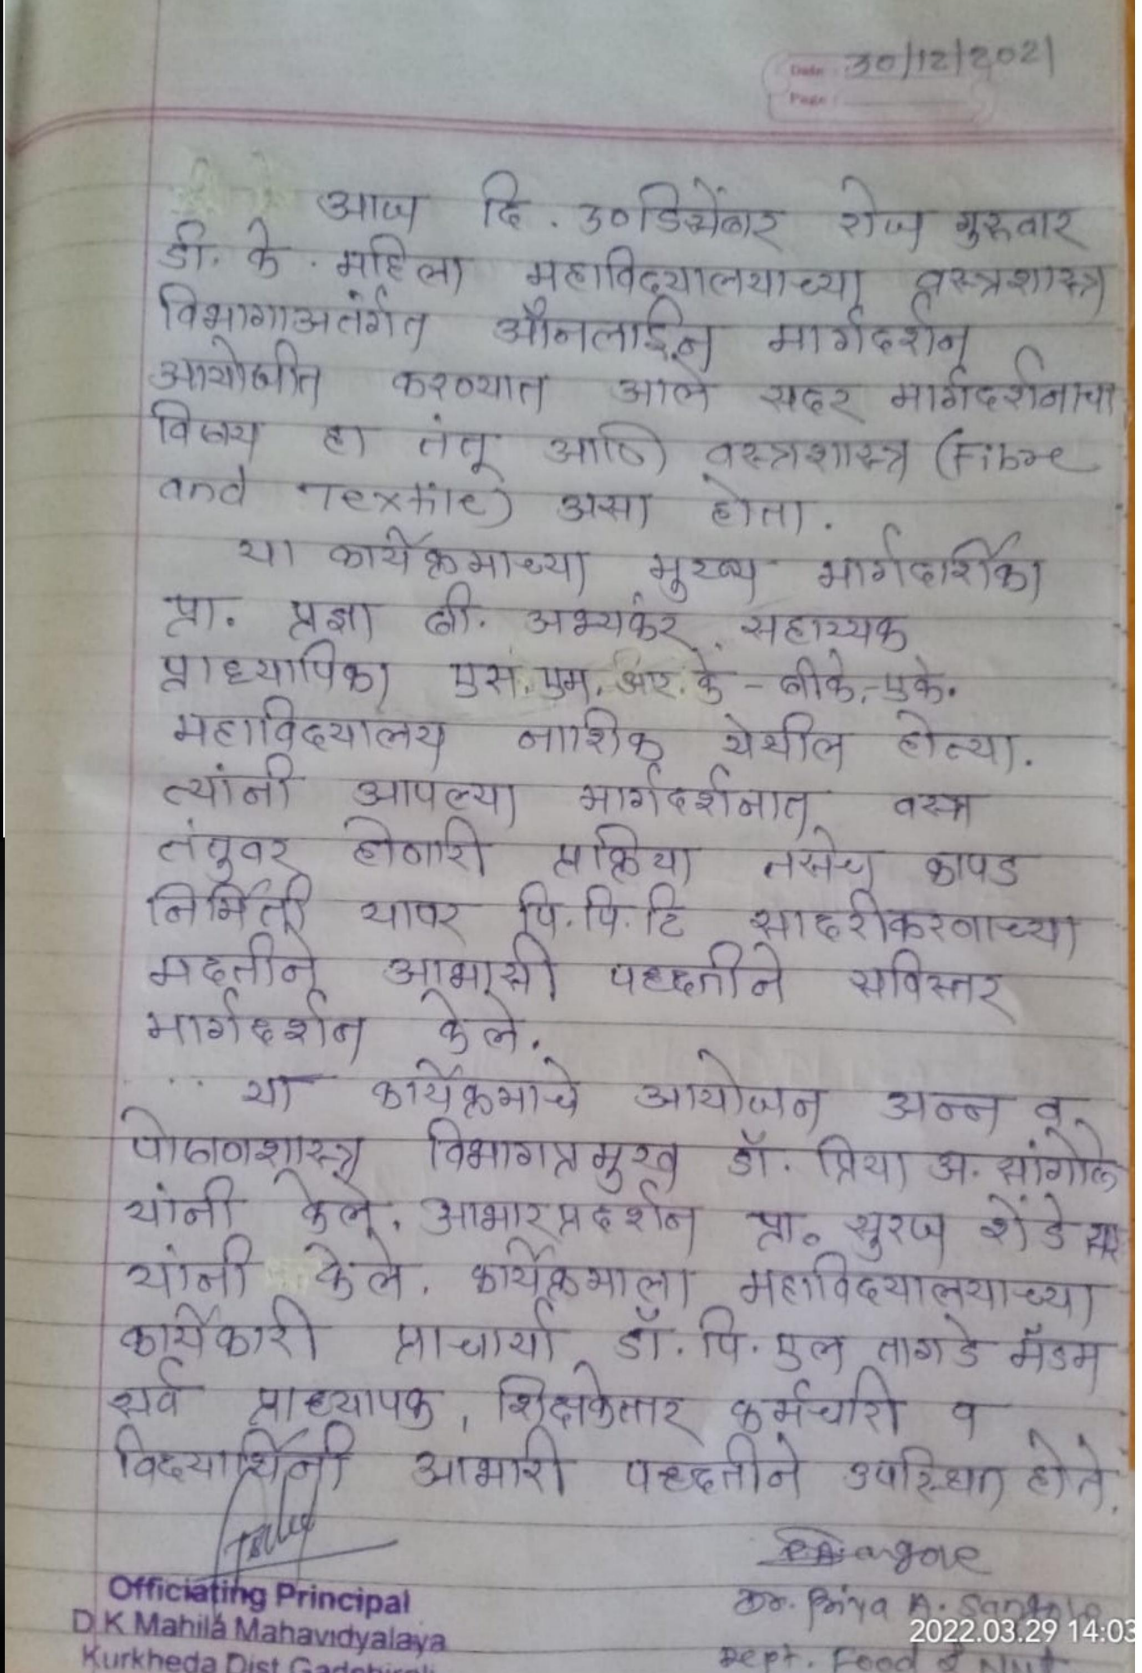 Date 30/12/2021
Page
आज दि. 30 डिसेंबर रोज गुरुवार
डी. के. महिला महाविदयालयाच्या वस्त्रशास्त्र
विभागाअतंर्गत ऑनलाईन मार्गदर्शन
आयोजीत करण्यात आले सदर मार्गदर्शनाचा
विषय हा तंतू आणि वस्त्रशास्त्र (Fibre
and Textile) असा होता.
या कार्यक्रमाच्या मुख्य मार्गदर्शिका
प्रा. प्रज्ञा बी. अभ्यंकर सहाय्यक
प्राध्यापिका एस. एम. आर. के - बीके.-एके.
महाविदयालय नाशिक येथील होत्या.
त्यांनी आपल्या मार्गदर्शनात वस्त्र
तंतुवर होणारी प्रक्रिया तसेच कापड
निर्मिती यावर पि.पि.टि सादरीकरणाच्या
मदतीने आभासी पध्दतीने सविस्तर
मार्गदर्शन केले.
या कार्यक्रमाचे आयोजन अन्न व
पोषणशास्त्र विभागप्रमुख डॉ. प्रिया अ. सांगोळे
यांनी केले. आभारप्रदर्शन प्रा. सुरज शेंडे सर
यांनी केले. कार्यक्रमाला महाविदयालयाच्या
कार्यकारी प्राचार्या डॉ. पि. एल तागडे मॅडम
सर्व प्राध्यापक, शिक्षकेत्तर कर्मचारी व
विदयार्थिनी आभारी पध्दतीने उपस्थित होते.
Officiating Principal
D K Mahila Mahavidyalaya
Kurkheda Dist Gadchiroli
Dr. Priya A. Sangole
Dept. Food & Nut
2022.03.29 14:03